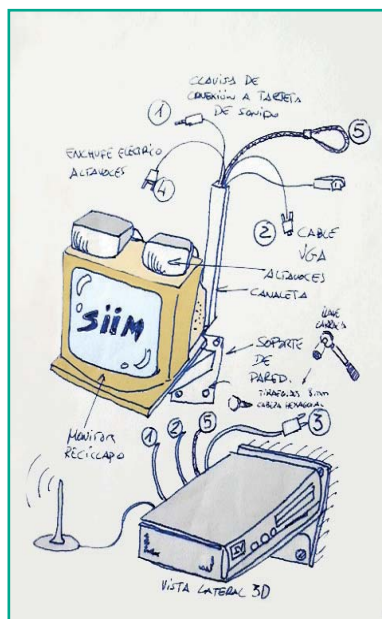 CLAVIJA DE
CONEXIÓN A TARJETA
DE SONIDO
1
5
ENCHUFE ELÉCTRICO
ALTAVOCES
4
2
CABLE
VGA
ALTAVOCES
CANALETA
SIIM
LLAVE
CARRACA
SOPORTE
DE
PARED.
TIRAFONDOS 8 mm
CABEZA HEXAGONAL
MONITOR
RECICLADO
1
2
5
3
VISTA LATERAL 3D